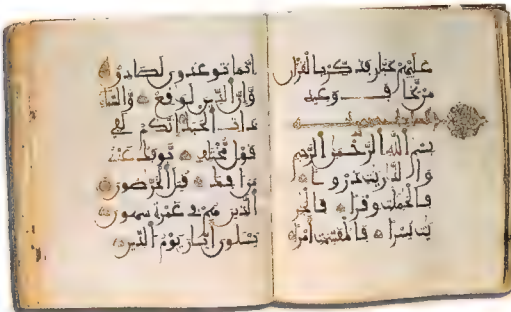 عليهم بجبار فذكر بالقرءان
من يخاف وعيد
بسم الله الرحمن الرحيم
والذريت ذروا
فالحملت وقرا فالجر
يت يسرا فالمقسمت أمرا
انما توعدون لصادق
وإن الدين لوقع والسماء
ذات الحبك إنكم لفي
قول مختلف يوفك عنه
من أفك قتل الخرصون
الذين هم في غمرة ساهون
يسلون أيان يوم الدين